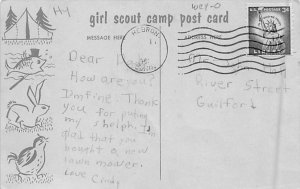 H-1
WEY-O
girl scout camp post card
MESSAGE HERE
ADDRESS HERE
HEBRON
Dear
How are you?
I'm fine. Thank
you for puting
my shelph. I'm
glad that you
bought a new
lawn mower.
Love Cindy
River Street
Guilford
3¢